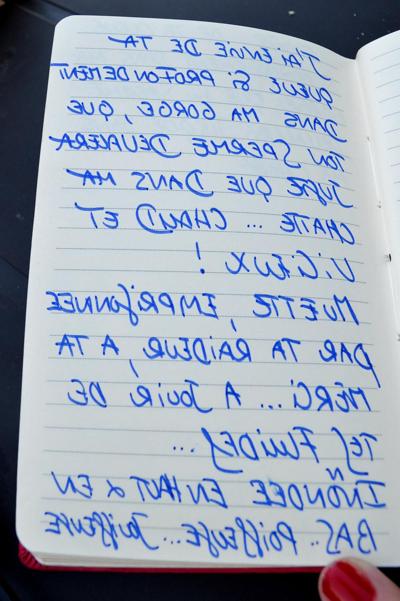 J'AI ENVIE DE TA
QUEUE SI PROFONDEMENT
DANS MA GORGE, QUE
TON SPERME DEVALERA
JUSTE QUE DANS MA
CHATTE ... CHAUD ET
VICIEUX !
MUETTE, EMPRISONNEE
PAR TA RAIDEUR, A TA
MERCI... A JOUIR DE
TES FLUIDES...
INONDEE EN HAUT & EN
BAS.. POISSEUSE...